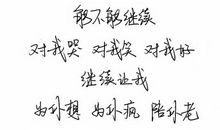 能不能继续
对我哭 对我笑 对我好
继续让我
为你想 为你疯 陪你老